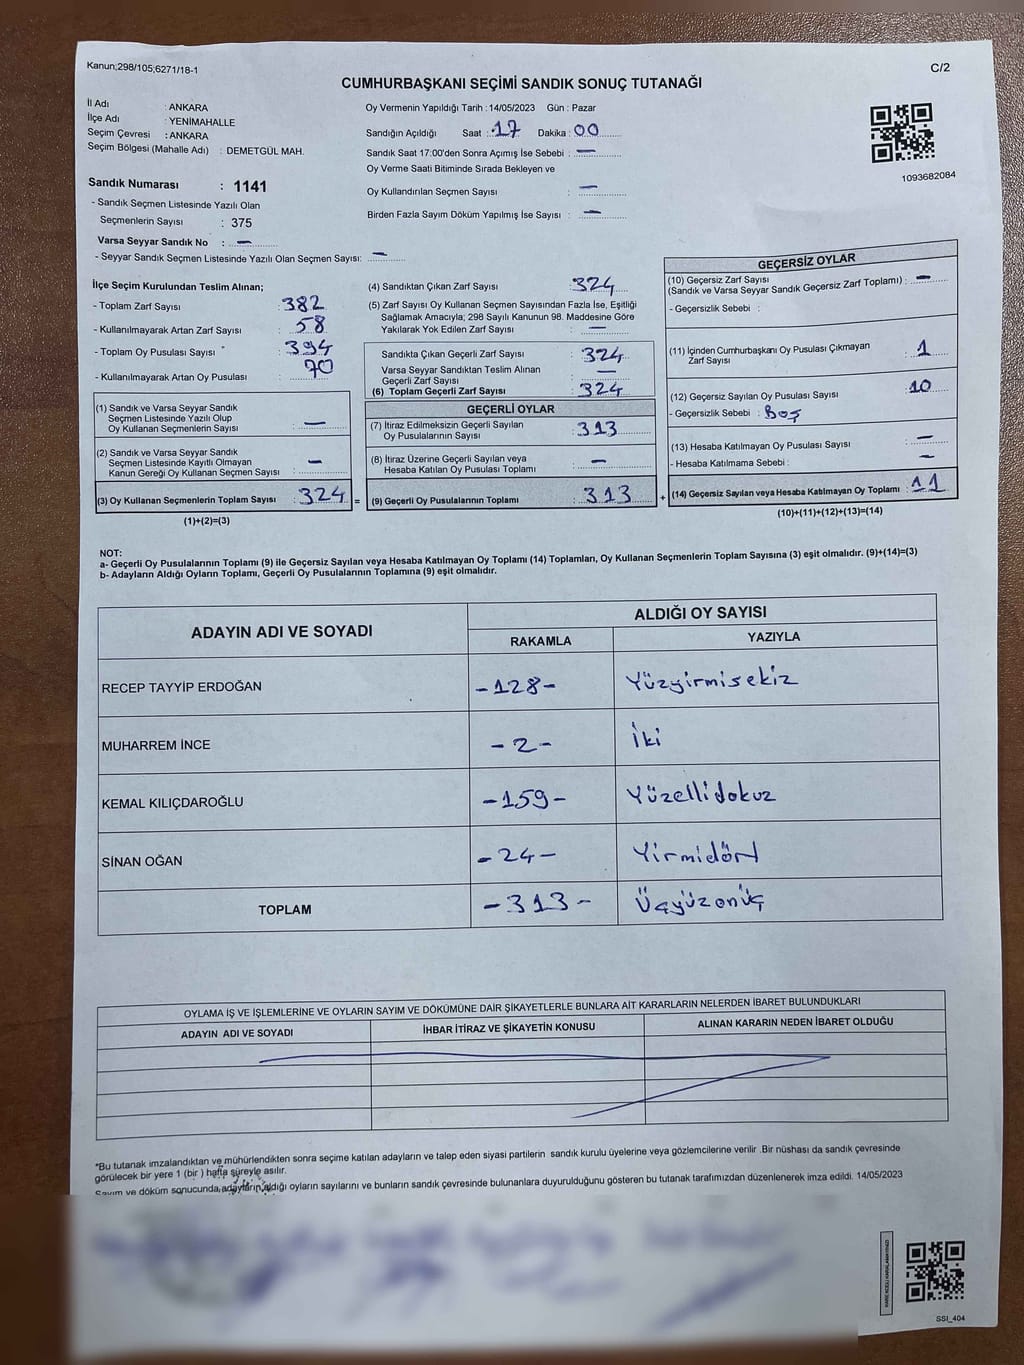 Kanun;298/105;6271/18-1
C/2
CUMHURBAŞKANI SEÇİMİ SANDIK SONUÇ TUTANAĞI
İl Adı : ANKARA
İlçe Adı : YENİMAHALLE
Seçim Çevresi : ANKARA
Seçim Bölgesi (Mahalle Adı) : DEMETGÜL MAH.
Sandık Numarası : 1141
- Sandık Seçmen Listesinde Yazılı Olan
Seçmenlerin Sayısı : 375
Varsa Seyyar Sandık No : —
- Seyyar Sandık Seçmen Listesinde Yazılı Olan Seçmen Sayısı: —
Oy Vermenin Yapıldığı Tarih : 14/05/2023 Gün : Pazar
Sandığın Açıldığı Saat : 17 Dakika : 00
Sandık Saat 17:00'den Sonra Açımış İse Sebebi : —
Oy Verme Saati Bitiminde Sırada Bekleyen ve
Oy Kullandırılan Seçmen Sayısı : —
Birden Fazla Sayım Döküm Yapılmış İse Sayısı : —
1093682084
İlçe Seçim Kurulundan Teslim Alınan;
- Toplam Zarf Sayısı : 382
- Kullanılmayarak Artan Zarf Sayısı : 58
- Toplam Oy Pusulası Sayısı : 394
- Kullanılmayarak Artan Oy Pusulası : 70
(1) Sandık ve Varsa Seyyar Sandık
Seçmen Listesinde Yazılı Olup
Oy Kullanan Seçmenlerin Sayısı : —
(2) Sandık ve Varsa Seyyar Sandık
Seçmen Listesinde Kayıtlı Olmayan
Kanun Gereği Oy Kullanan Seçmen Sayısı : —
(3) Oy Kullanan Seçmenlerin Toplam Sayısı : 324 =
(1)+(2)=(3)
(4) Sandıktan Çıkan Zarf Sayısı : 324
(5) Zarf Sayısı Oy Kullanan Seçmen Sayısından Fazla İse, Eşitliği
Sağlamak Amacıyla; 298 Sayılı Kanunun 98. Maddesine Göre
Yakılarak Yok Edilen Zarf Sayısı : —
Sandıkta Çıkan Geçerli Zarf Sayısı : 324
Varsa Seyyar Sandıktan Teslim Alınan
Geçerli Zarf Sayısı : —
(6) Toplam Geçerli Zarf Sayısı : 324
GEÇERLİ OYLAR
(7) İtiraz Edilmeksizin Geçerli Sayılan
Oy Pusulalarının Sayısı : 313
(8) İtiraz Üzerine Geçerli Sayılan veya
Hesaba Katılan Oy Pusulası Toplamı : —
(9) Geçerli Oy Pusulalarının Toplamı : 313 +
GEÇERSİZ OYLAR
(10) Geçersiz Zarf Sayısı
(Sandık ve Varsa Seyyar Sandık Geçersiz Zarf Toplamı) : —
- Geçersizlik Sebebi :
(11) İçinden Cumhurbaşkanı Oy Pusulası Çıkmayan
Zarf Sayısı : 1
(12) Geçersiz Sayılan Oy Pusulası Sayısı : 10
- Geçersizlik Sebebi : Boş
(13) Hesaba Katılmayan Oy Pusulası Sayısı : —
- Hesaba Katılmama Sebebi : —
(14) Geçersiz Sayılan veya Hesaba Katılmayan Oy Toplamı : 11
(10)+(11)+(12)+(13)=(14)
NOT:
a- Geçerli Oy Pusulalarının Toplamı (9) ile Geçersiz Sayılan veya Hesaba Katılmayan Oy Toplamı (14) Toplamları, Oy Kullanan Seçmenlerin Toplam Sayısına (3) eşit olmalıdır. (9)+(14)=(3)
b- Adayların Aldığı Oyların Toplamı, Geçerli Oy Pusulalarının Toplamına (9) eşit olmalıdır.
ADAYIN ADI VE SOYADI
ALDIĞI OY SAYISI
RAKAMLA YAZIYLA
RECEP TAYYİP ERDOĞAN -128- Yüzyirmisekiz
MUHARREM İNCE -2- İki
KEMAL KILIÇDAROĞLU -159- Yüzellidokuz
SİNAN OĞAN -24- Yirmidört
TOPLAM -313- Üçyüzonüç
OYLAMA İŞ VE İŞLEMLERİNE VE OYLARIN SAYIM VE DÖKÜMÜNE DAİR ŞİKAYETLERLE BUNLARA AİT KARARLARIN NELERDEN İBARET BULUNDUKLARI
ADAYIN ADI VE SOYADI İHBAR İTİRAZ VE ŞİKAYETİN KONUSU ALINAN KARARIN NEDEN İBARET OLDUĞU
*Bu tutanak imzalandıktan ve mühürlendikten sonra seçime katılan adayların ve talep eden siyasi partilerin sandık kurulu üyelerine veya gözlemcilerine verilir .Bir nüshası da sandık çevresinde
görülecek bir yere 1 (bir ) hafta süreyle asılır.
Sayım ve döküm sonucunda,adayların aldığı oyların sayılarını ve bunların sandık çevresinde bulunanlara duyurulduğunu gösteren bu tutanak tarafımızdan düzenlenerek imza edildi. 14/05/2023
SSI_404